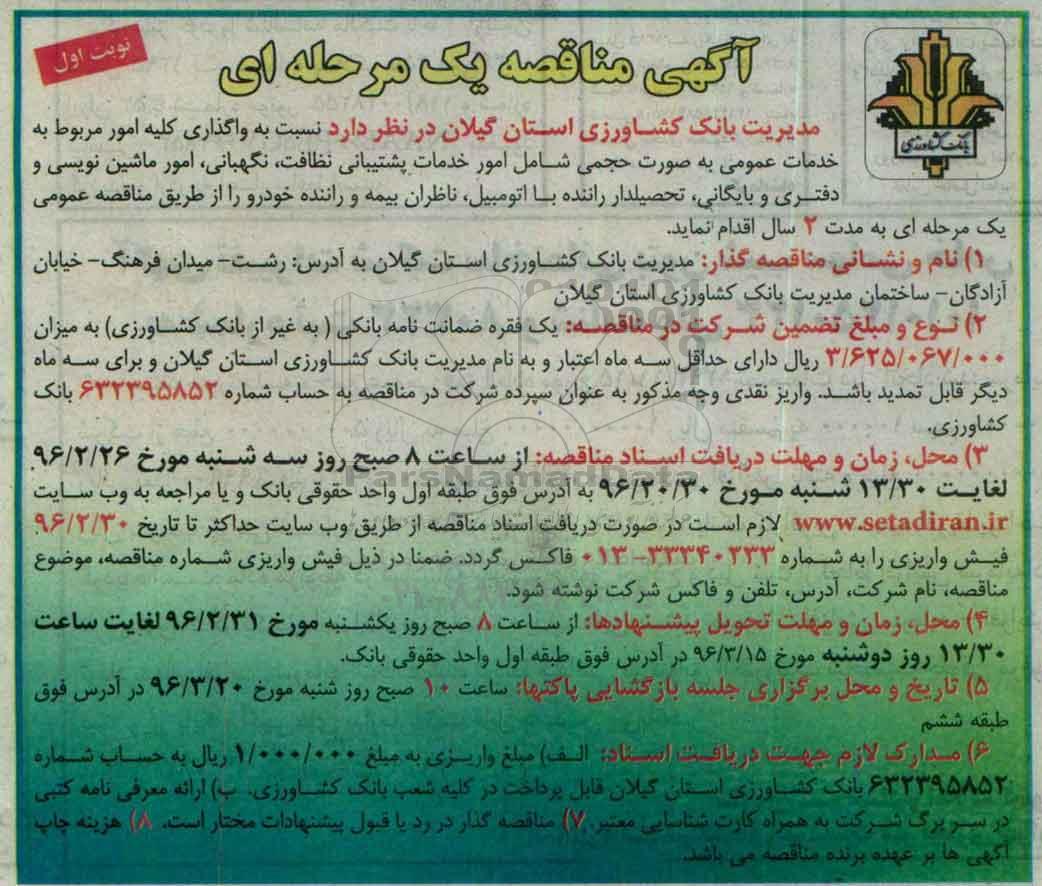 نوبت اول
آگهی مناقصه یک مرحله ای
بانک کشاورزی
مدیریت بانک کشاورزی استان گیلان در نظر دارد نسبت به واگذاری کلیه امور مربوط به
خدمات عمومی به صورت حجمی شامل امور خدمات پشتیبانی نظافت، نگهبانی، امور ماشین نویسی و
دفتری و بایگانی، تحصیلدار راننده با اتومبیل، ناظران بیمه و راننده خودرو را از طریق مناقصه عمومی
یک مرحله ای به مدت ۲ سال اقدام نماید.
۱) نام و نشانی مناقصه گذار: مدیریت بانک کشاورزی استان گیلان به آدرس: رشت- میدان فرهنگ- خیابان
آزادگان- ساختمان مدیریت بانک کشاورزی استان گیلان
۲) نوع و مبلغ تضمین شرکت در مناقصه: یک فقره ضمانت نامه بانکی ( به غیر از بانک کشاورزی) به میزان
۳/۶۲۵/۰۶۷/۰۰۰ ریال دارای حداقل سه ماه اعتبار و به نام مدیریت بانک کشاورزی استان گیلان و برای سه ماه
دیگر قابل تمدید باشد. واریز نقدی وجه مذکور به عنوان سپرده شرکت در مناقصه به حساب شماره ۶۳۲۳۹۵۸۵۲ بانک
کشاورزی.
۳) محل، زمان و مهلت دریافت اسناد مناقصه: از ساعت ۸ صبح روز سه شنبه مورخ ۹۶/۲/۲۶
لغایت ۱۳/۳۰ شنبه مورخ ۹۶/۲۰/۳۰ به آدرس فوق طبقه اول واحد حقوقی بانک و یا مراجعه به وب سایت
www.setadiran.ir لازم است در صورت دریافت اسناد مناقصه از طریق وب سایت حداکثر تا تاریخ ۹۶/۲/۳۰
فیش واریزی را به شماره ۳۳۳۴۰۲۳۳- ۰۱۳ فاکس گردد. ضمنا در ذیل فیش واریزی شماره مناقصه، موضوع
مناقصه، نام شرکت، آدرس، تلفن و فاکس شرکت نوشته شود.
۴) محل، زمان و مهلت تحویل پیشنهادها: از ساعت ۸ صبح روز یکشنبه مورخ ۹۶/۲/۳۱ لغایت ساعت
۱۳/۳۰ روز دوشنبه مورخ ۹۶/۳/۱۵ در آدرس فوق طبقه اول واحد حقوقی بانک.
۵) تاریخ و محل برگزاری جلسه بازگشایی پاکتها: ساعت ۱۰ صبح روز شنبه مورخ ۹۶/۳/۲۰ در آدرس فوق
طبقه ششم
۶) مدارک لازم جهت دریافت اسناد: الف) مبلغ واریزی به مبلغ ۱/۰۰۰/۰۰۰ ریال به حساب شماره
۶۳۲۳۹۵۸۵۲ بانک کشاورزی استان گیلان قابل پرداخت در کلیه شعب بانک کشاورزی. ب) ارائه معرفی نامه کتبی
در سر برگ شرکت به همراه کارت شناسایی معتبر. ۷) مناقصه گذار در رد یا قبول پیشنهادات مختار است. ۸) هزینه چاپ
آگهی ها بر عهده برنده مناقصه می باشد.
ParsNamadData